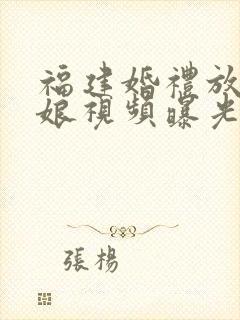 福建婚禮放
娘視頻曝光
張楊